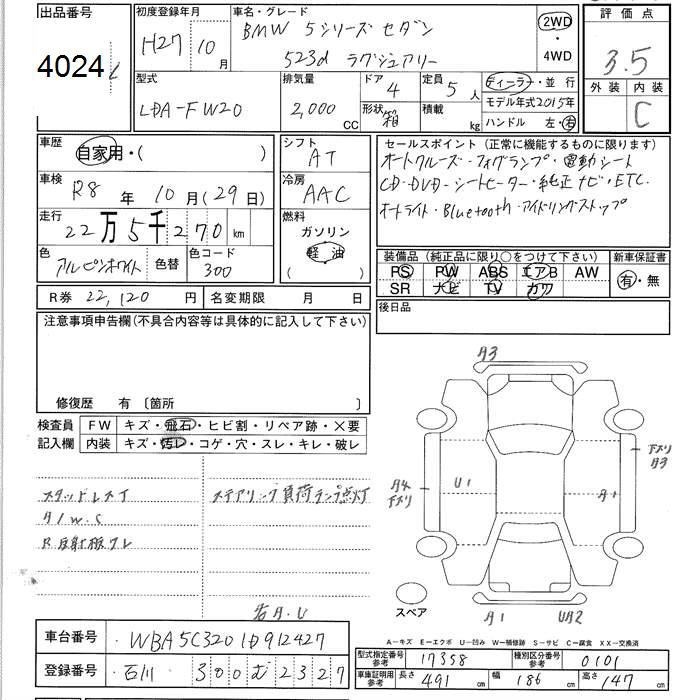 出品番号
4024
初度登録年月
H27年10月
車名・グレード
BMW 5シリーズ セダン
523d ラグジュアリー
2WD
・
4WD
評価点
3.5
外装 内装
C
型式
LDA-FW20
排気量
2,000 CC
ドア
4
形状
箱
定員
5人
積載
kg
ディーラー・並行
モデル年式2015年
ハンドル 左・右
車歴
自家用・( )
車検
R8年10月(29日)
走行
22万5千270km
色
アルピンホワイト
色替
色コード
300
シフト
AT
冷房
AAC
燃料
ガソリン
軽油
( )
セールスポイント(正常に機能するものに限ります)
オートクルーズ・フォグランプ・電動シート
CD・DVD・シートヒーター・純正ナビ・ETC
オートライト・Bluetooth・アイドリングストップ
装備品(純正品に限り○をつけて下さい)
PS PW ABS エアB AW
SR ナビ TV カワ
新車保証書
有・無
R券 22,120円
名変期限 月 日
後日品
注意事項申告欄(不具合内容等は具体的に記入して下さい)
修復歴 有〔箇所 〕
検査員
記入欄
FW キズ・飛石・ヒビ割・リペア跡・×要
内装 キズ・汚レ・コゲ・穴・スレ・キレ・破レ
スタッドレスT
A1W.S
R反射板ワレ
ステアリング負荷ランプ点灯
若A.U
A3
A4
下スリ
U1
A1
下スリ
A3
A1
UA2
スペア
A-キズ E-エクボ U-凹み W-補修跡 S-サビ C-腐食 XX-交換済
車台番号
WBA5C3201D912427
登録番号
石川 300 む 2327
型式指定番号
参考
17358
種別区分番号
参考
0101
車庫証明用
参考
長さ 491cm
幅 186cm
高さ 147cm